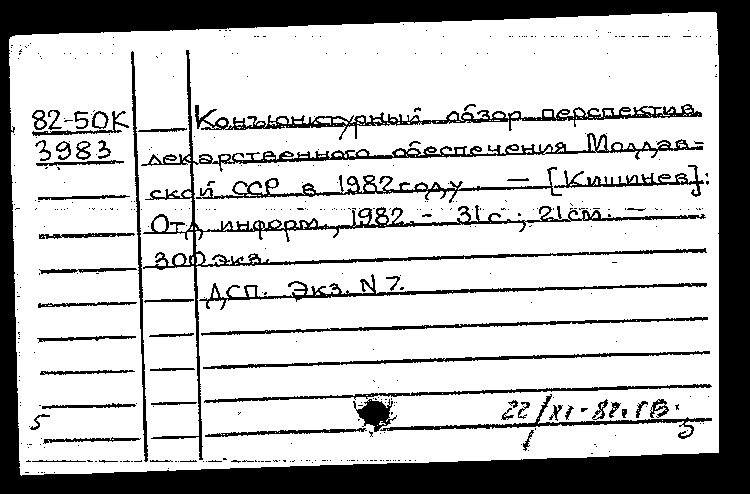 82-50К Конъюнктурный обзор перспектив
3983 лекарственного обеспечения Молдав-
ской ССР в 1982 году. — [Кишинев]:
Отд. информ., 1982. - 31 с.; 21 см. —
300 экз.
ДСП. Экз. N 7.
22/XI-82. ГВ.
5 5